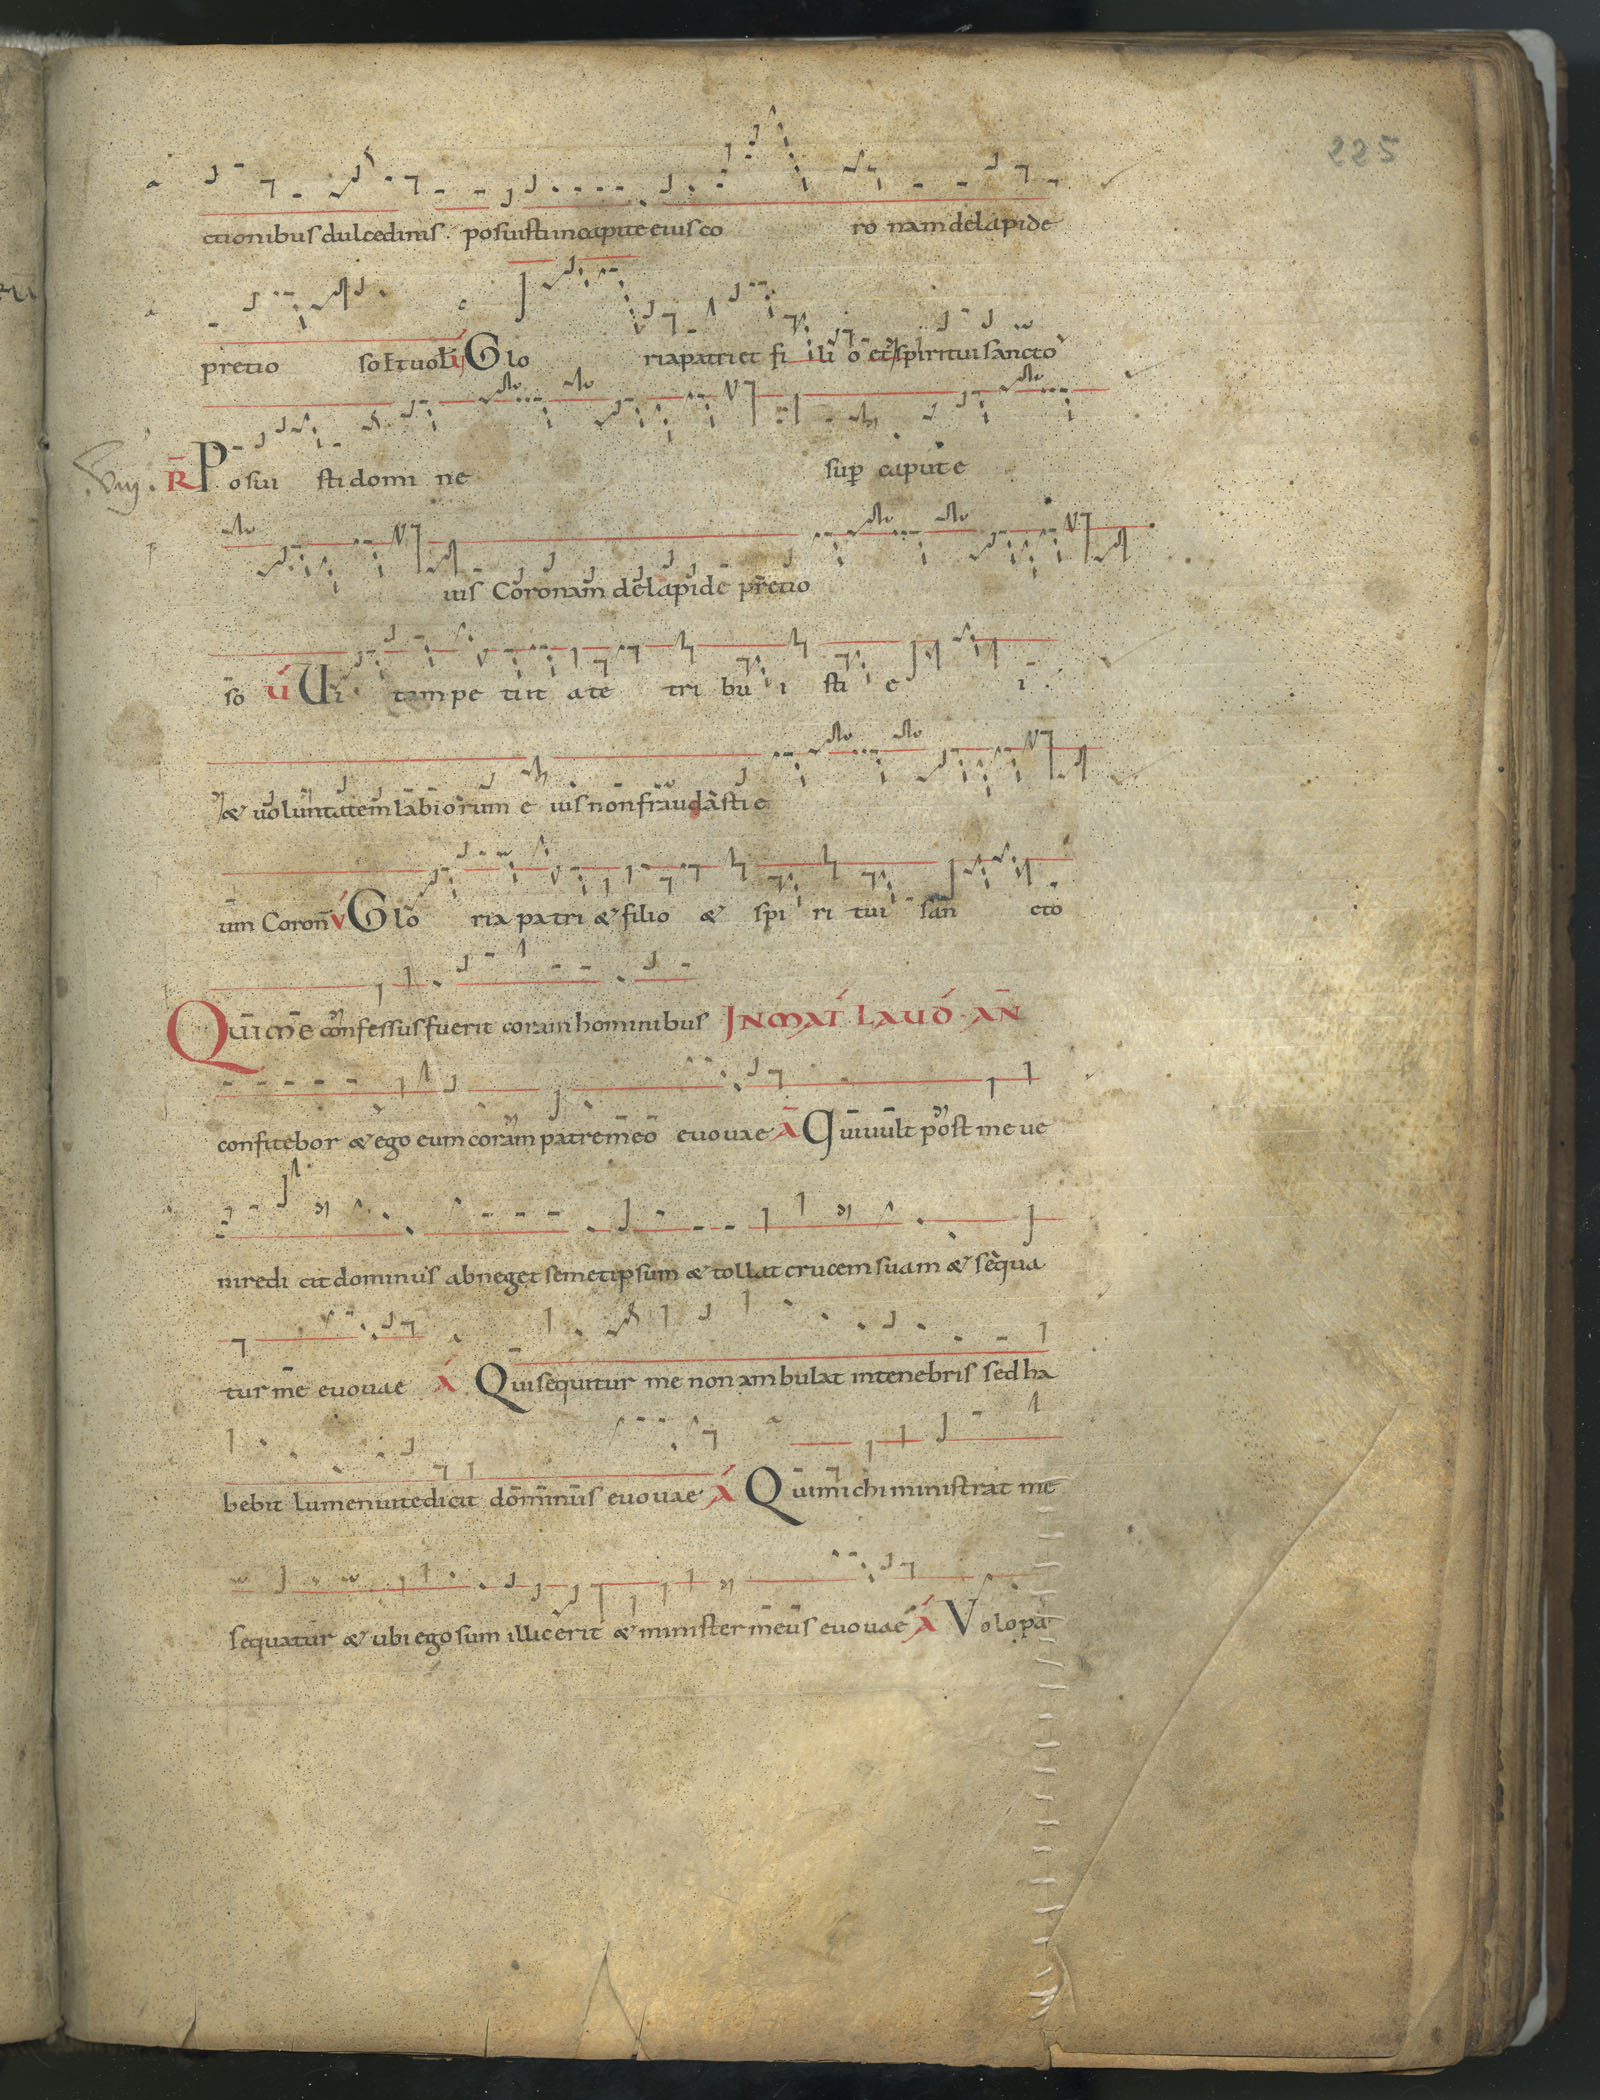 225
ctionibus dulcedinis. posuisti in capite eius co ro nam de lapide
pretio so Glo ria patri et fi ili o et spiritui sancto
R̄ Posui sti domi ne sup̄ capite
ius Coronam de lapide pretio
so V́ Vi tam pe tiit a te tri bu i sti e i
& uoluntatem labiorum e ius non fraudasti e
um Coron̄ V́ Glo ria patri & filio & spi ri tui san cto
Qui me confessus fuerit coram hominibus IN MAT́ LAUD́ AN̄
confitebor & ego eum coram patre meo euouae A Qui uult post me ue
nire di cit dominus abneget semetipsum & tollat crucem suam & sequa
tur me euouae A Qui sequitur me non ambulat in tenebris sed ha
bebit lumen uite dicit dominus euouae A Qui michi ministrat me
sequatur & ubi ego sum illic erit & minister meus euouae A Volo pa